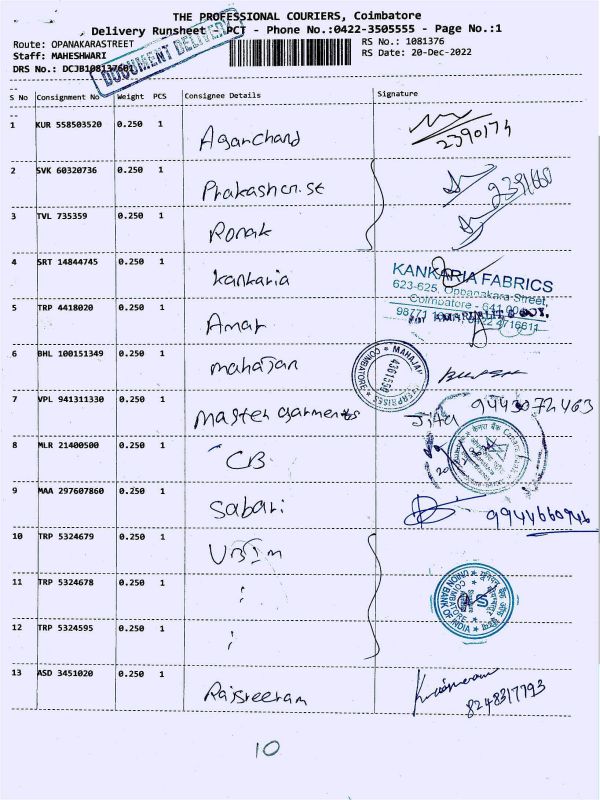 THE PROFESSIONAL COURIERS, Coimbatore
Delivery Runsheet - PCT - Phone No.:0422-3505555 - Page No.:1
Route: OPANAKARASTREET
RS No.: 1081376
Staff: MAHESHWARI
RS Date: 20-Dec-2022
DRS No.: DCJB108137601
DOCUMENT DELIVERY
S No Consignment No Weight PCS Consignee Details Signature
1 KUR 558503520 0.250 1 Agarchand 2390174
2 SVK 60320736 0.250 1 Prakash 
3 TVL 735359 0.250 1 Ronak
4 SRT 14844745 0.250 1 Kankaria
KANKARIA FABRICS
623-625, Oppanakara Street,
Coimbatore - 641 001
5 TRP 4418020 0.250 1 Amar
6 BHL 100151349 0.250 1 mahajan
COIMBATORE MAHAJAN ENTERPRISES
7 VPL 941311330 0.250 1 Master garments 9443072463
8 MLR 21400500 0.250 1 CB
9 MAA 297607860 0.250 1 Sabari 9944660946
10 TRP 5324679 0.250 1 UBIM
11 TRP 5324678 0.250 1 ;
UNION BANK OF INDIA
COIMBATORE
12 TRP 5324595 0.250 1 ;
13 ASD 3451020 0.250 1 Rajsreeram 8248317793
10